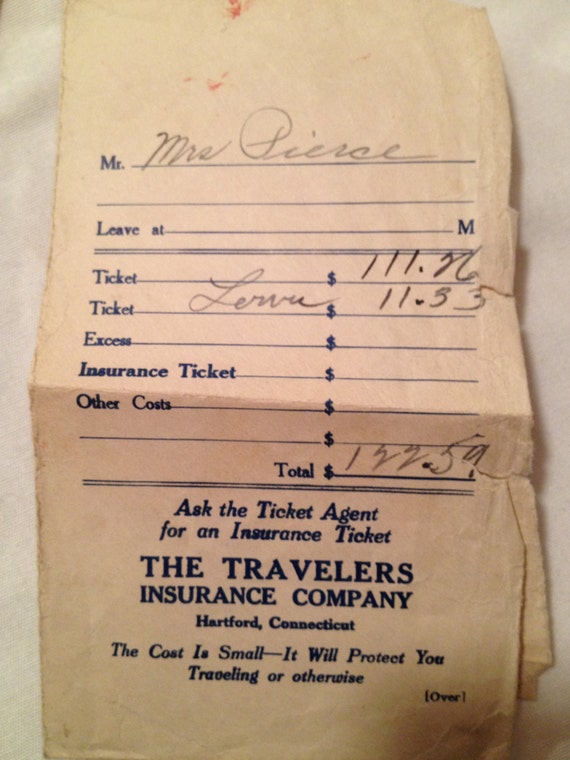 Mr. Mrs Pierce
Leave at M
Ticket $ 111.26
Ticket Lower $ 11.33
Excess $
Insurance Ticket $
Other Costs $
$
Total $ 122.59
Ask the Ticket Agent
for an Insurance Ticket
THE TRAVELERS
INSURANCE COMPANY
Hartford, Connecticut
The Cost Is Small—It Will Protect You
Traveling or otherwise
[Over]